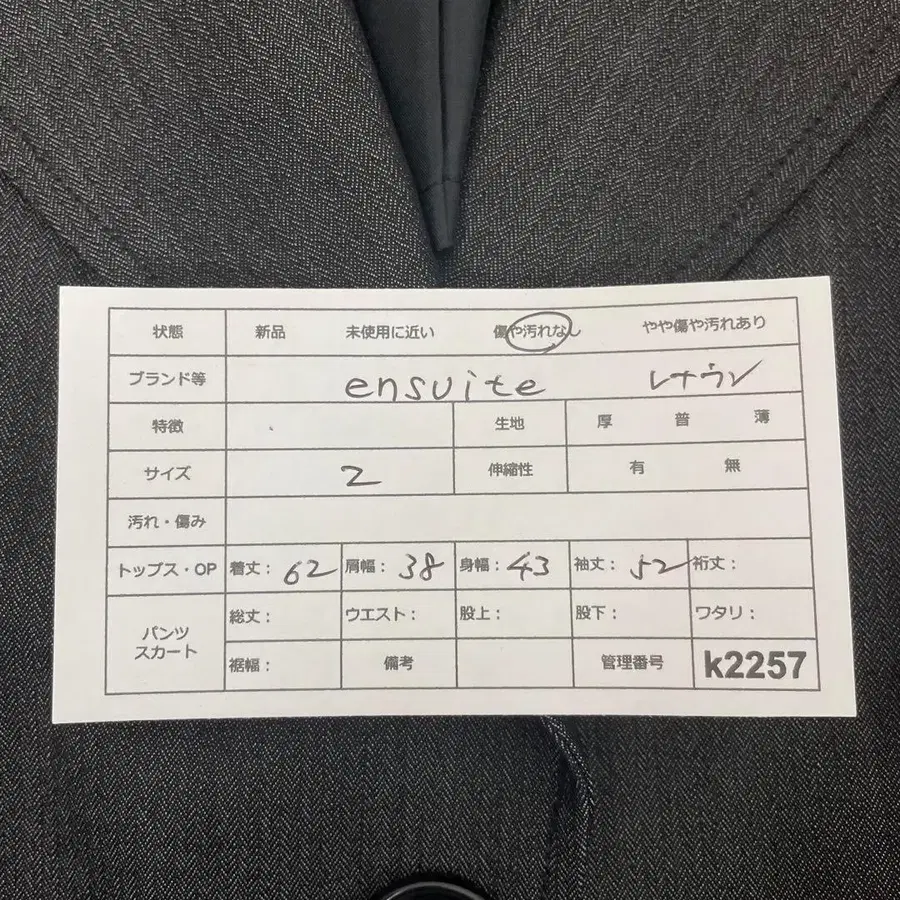 状態 新品 未使用に近い 傷や汚れなし やや傷や汚れあり
ブランド等 ensuite レナウン
特徴 生地 厚 普 薄
サイズ 2 伸縮性 有 無
汚れ・傷み
トップス・OP 着丈: 62 肩幅: 38 身幅: 43 袖丈: 52 裄丈:
パンツ 総丈: ウエスト: 股上: 股下: ワタリ:
スカート 裾幅: 備考 管理番号 k2257